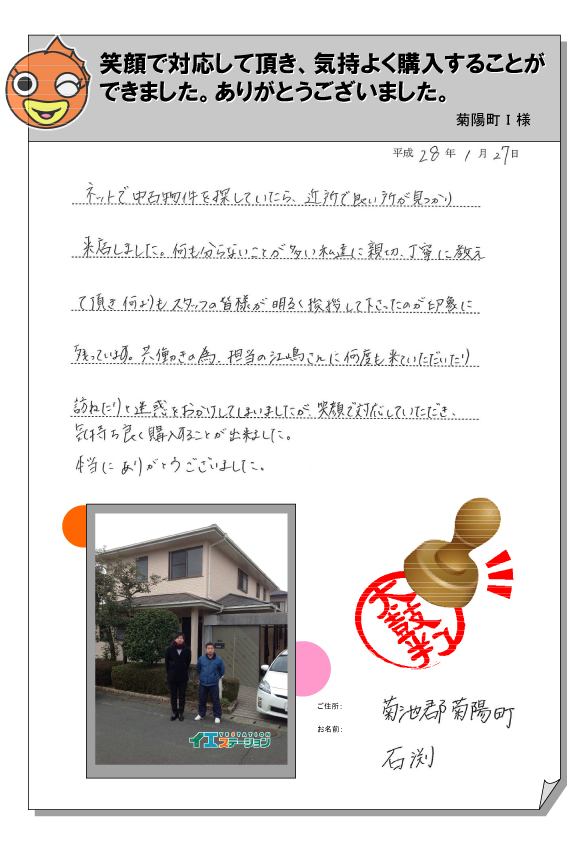 笑顔で対応して頂き、気持よく購入することが
できました。ありがとうございました。
菊陽町 I 様
平成 28 年 1 月 27 日
ネットで中古物件を探していたら、近所で良い所が見つかり
来店しました。何も分らないことが多い私達に親切、丁寧に教え
て頂き何よりもスタッフの皆様が明るく挨拶して下さったのが印象に
残っています。共働きの為、担当の江嶋さんに何度も来ていただいたり
訪ねたりと迷惑をおかけしてしまいましたが、笑顔で対応していただき、
気持ち良く購入することが出来ました。
本当にありがとうございました。
太鼓判
YESTATION
イエステーション
ご住所: 菊池郡菊陽町
お名前: 石渕